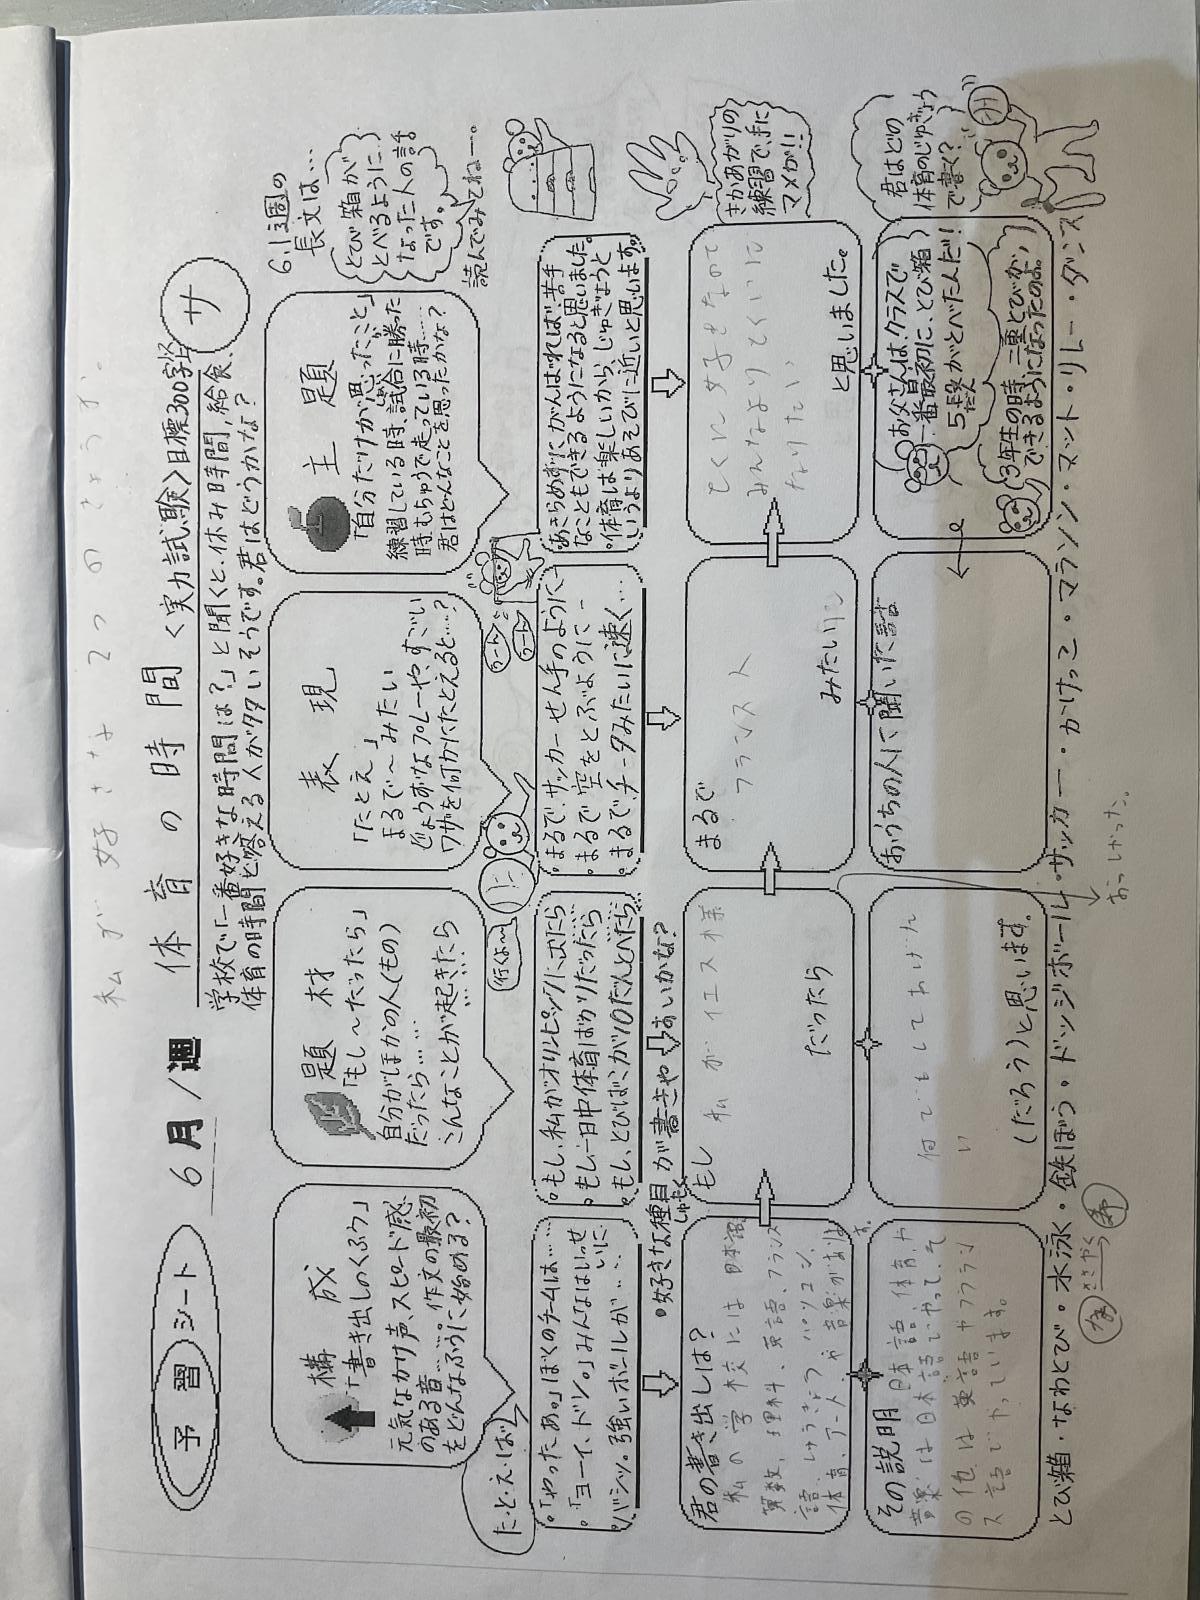 私が好きな2つのきょうか。
予習シート
6月1週
体育の時間
<実力試験>目標300字
サ
学校で「一番好きな時間は?」と聞くと、休み時間、給食、
体育の時間と答える人が多いそうです。君はどうかな?
6.1週の
長文は…
とび箱が
とべるように
なった人の話
です。
読んでみてねー。
構成
「書き出しのくふう」
元気なかけ声、スピード感
のある音…。作文の最初
をどんなふうに始める?
題材
「もし~だったら」
自分がほかの人(もの)
だったら……
こんなことが起きたら
……
表現
「たとえ」
まるで~みたい
じょうずなプレーやすごい
ワザを何かにたとえると…?
主題
「自分だけが思ったこと」
練習している時、試合に勝った
時、むちゅうで走っている時……
君はどんなことを思ったかな?
た・と・え・ば
行くよ~
。「やったあ。」ぼくのチームは……
。「ヨーイ、ドン。」みんなはいっせいに
。バシッ。強いボールが……
。もし、私がオリンピックに出たら
。もし、一日中体育ばかりだったら
。もし、とびばこが10だんとべたら
・まるで、サッカーせん手のように
・まるで空をとぶように
・まるで、チータみたいに速く…
・あきらめずにがんばれば、苦手
なこともできるようになると思いました。
・体育は楽しいから、じゅぎょうと
いうよりあそびに近いと思います。
・好きな種目が書きやすいかな?
しゅもく
さかあがりの
練習で、手に
マメが!!
君の書き出しは?
私の学校には日本語
算数、理科、英語、フランス
語、
体育、アートや音楽があります。
もし
私がイエス様
だったら
まるで
フランス人
みたいに
とくに女子をなので
みんなよりとくいに
なりたい
と思いました。
君はどの
体育のじゅぎょう
で書く?
その説明
日本語、体育、や
音楽は日本語でやって、そ
の他は英語やフラン
ス語でやっています。
何でもしてあげた
い
(だろう)と思います。
おうちの人に聞いた話
お父さんは、クラスで
一番最初に、とび箱
5段がとべたんだ!
3年生の時、二重とびが、
できるようになったのよ。
とび箱・なわとび・水泳・鉄ぼう・ドッジボール・サッカー・かけっこ・マラソン・マット・リレー・ダンス
ささやく
おっしゃった。